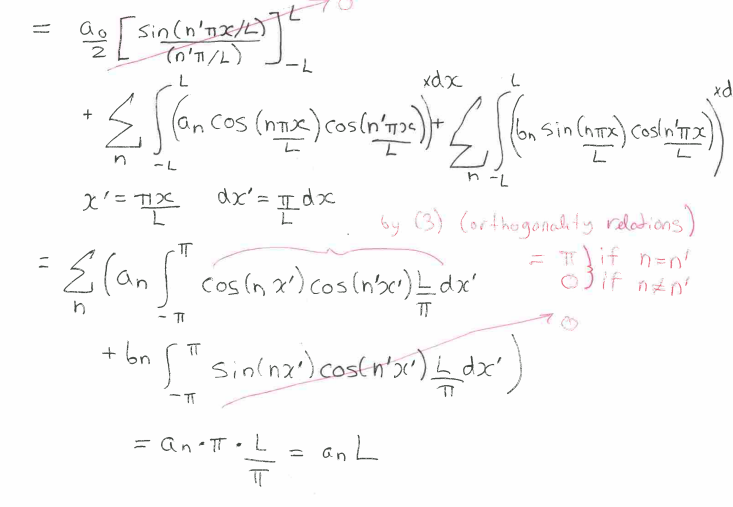 = a₀/2 [ sin(n'πx/L) / (n'π/L) ]_{-L}^{L} → 0
+ Σ_n ∫_{-L}^{L} (aₙ cos(nπx/L) cos(n'πx/L)) xdx + Σ_n ∫_{-L}^{L} (bₙ sin(nπx/L) cos(n'πx/L)) xd
x' = πx/L dx' = π/L dx
by (3) (orthogonality relations)
= Σ_n (aₙ ∫_{-π}^{π} cos(nx') cos(n'x') L/π dx' = π } if n=n'
0 } if n≠n'
+ bₙ ∫_{-π}^{π} sin(nx') cos(n'x') L/π dx' ) → 0
= aₙ · π · L/π = aₙ L